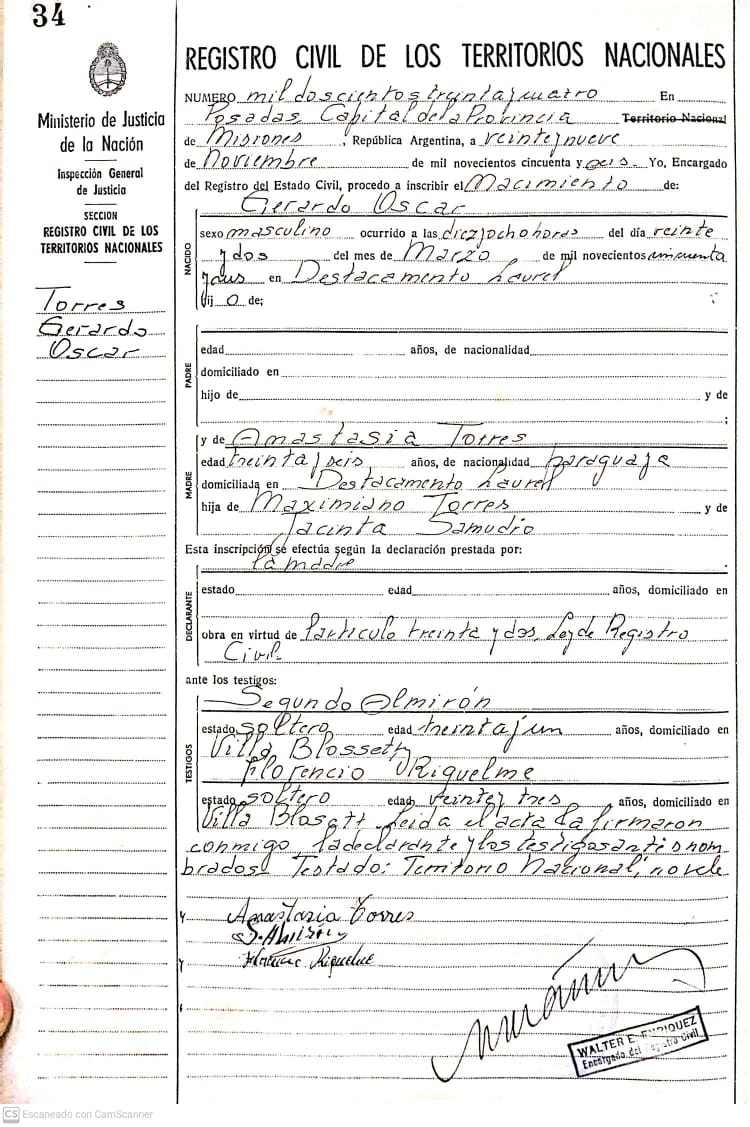 34
REGISTRO CIVIL DE LOS TERRITORIOS NACIONALES
Ministerio de Justicia
de la Nación
Inspección General
de Justicia
SECCION
REGISTRO CIVIL DE LOS
TERRITORIOS NACIONALES
Torres
Gerardo
Oscar
NUMERO mil doscientos treinta y cuatro En
Posadas, Capital de la Provincia Territorio Nacional
de Misiones, República Argentina, a veinte y nueve
de Noviembre de mil novecientos cincuenta y seis. Yo, Encargado
del Registro del Estado Civil, procedo a inscribir el Nacimiento de:
Gerardo Oscar
NACIDO
sexo masculino ocurrido a las diez y ocho horas del día veinte
y dos del mes de Marzo de mil novecientos cincuenta
y seis en Destacamento Laurel
hijo de;
PADRE
edad años, de nacionalidad
domiciliado en
hijo de y de
;
MADRE
y de Anastasia Torres
edad treinta y seis años, de nacionalidad paraguaya
domiciliada en Destacamento Laurel
hija de Maximiano Torres y de
Jacinta Samudio
Esta inscripción se efectúa según la declaración prestada por:
la madre
DECLARANTE
estado edad años, domiciliado en
obra en virtud de l'artículo treinta y dos, Ley de Registro
Civil.
ante los testigos:
TESTIGOS
Segundo Almirón
estado soltero edad treinta y un años, domiciliado en
Villa Blosseth
Florencio Riquelme
estado soltero edad veinte y tres años, domiciliado en
Villa Blosett. Leida el acta la firmaron
conmigo, la declarante y los testigos antes nom
brados. Testado: Territorio Nacional, no vale
Anastasia Torres
S. Almirón
Florencio Riquelme
WALTER E. ENRIQUEZ
Encargado del Registro Civil
CS Escaneado con CamScanner